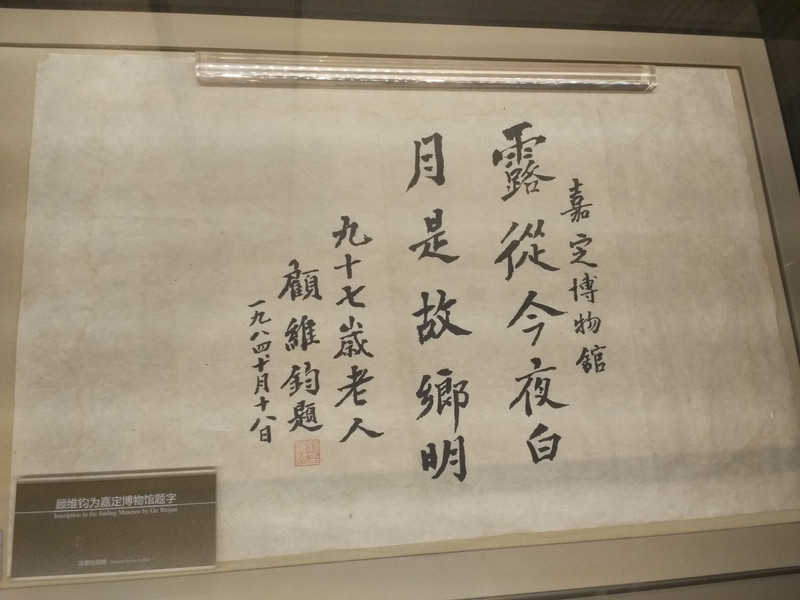 嘉定博物館
露從今夜白
月是故鄉明
九十七歲老人
顧維鈞題
一九八四十月十八日
顾维钧为嘉定博物馆题字
Inscription to the Jiading Museum by Gu Weijun